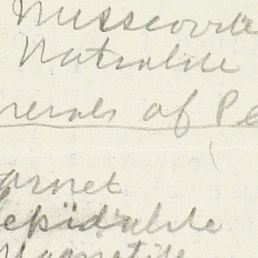 Muscovite
Natrolite
nerals of Pe
arnet
epidolite
Magnetite